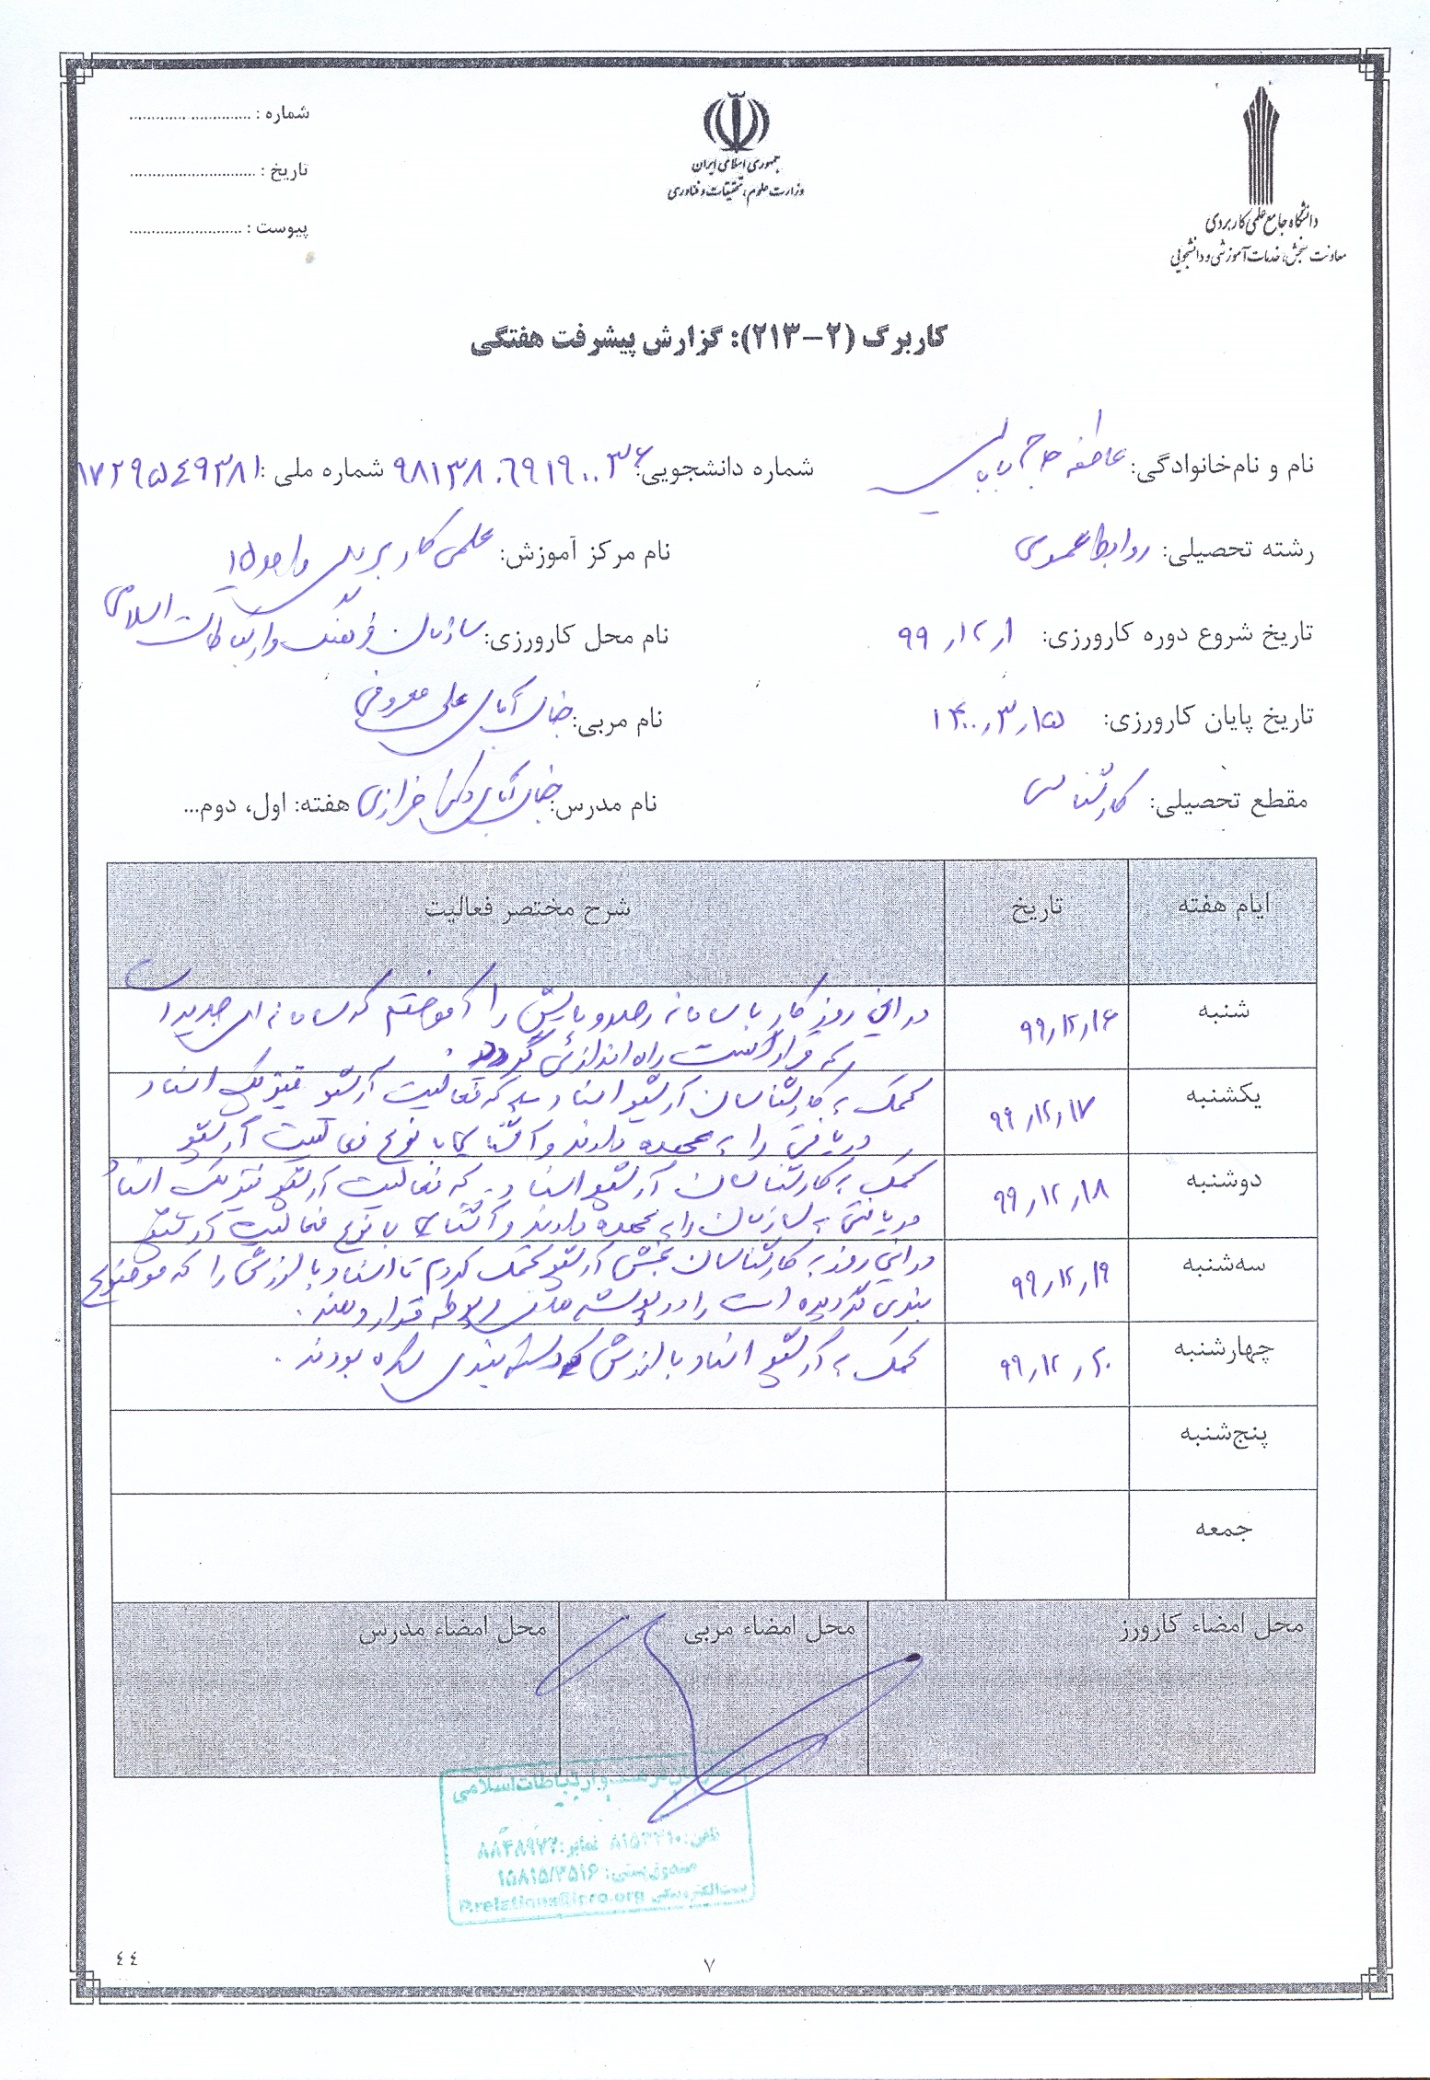 شماره : ..........................
تاریخ : .............................
پیوست : ..........................
جمهوری اسلامی ایران
وزارت علوم، تحقیقات و فناوری
دانشگاه جامع علمی کاربردی
معاونت سنجش، خدمات آموزشی و دانشجویی
کاربرگ (۲-۲۱۳): گزارش پیشرفت هفتگی
نام و نام‌خانوادگی: عاطفه حاج بابایی شماره دانشجویی: ۹۸۱۳۸۰۶۹۱۹۰۰۳۶ شماره ملی: ۱۷۲۹۵۴۹۳۸۱
رشته تحصیلی: روابط عمومی نام مرکز آموزش: علمی کاربردی واحد ۱۵
تاریخ شروع دوره کارورزی: ۹۹/۱۲/۱ نام محل کارورزی: سازمان فرهنگ و ارتباطات اسلامی
تاریخ پایان کارورزی: ۱۴۰۰/۳/۱۵ نام مربی: جناب آقای علی معروفی
مقطع تحصیلی: کارشناسی نام مدرس: جناب آقای دکتر خرازی هفته: اول، دوم...
ایام هفته تاریخ شرح مختصر فعالیت
شنبه ۹۹/۱۲/۱۶ در این روز کار با سامانه رصد و پایش را آموختم که سامانه ای جدید است
که قرار است راه اندازی گردد.
یکشنبه ۹۹/۱۲/۱۷ کمک به کارشناسان آرشیو اسناد که فعالیت آرشیو فیزیک اسناد
دریافتی را به عهده دارند و آشنایی با نوع فعالیت آرشیو
دوشنبه ۹۹/۱۲/۱۸ کمک به کارشناسان آرشیو اسناد که فعالیت آرشیو فیزیک اسناد
دریافتی به سازمان را به عهده دارند و آشنایی با نوع فعالیت آرشیو
سه‌شنبه ۹۹/۱۲/۱۹ در این روز به کارشناسان بخش آرشیو کمک کردم تا اسناد با ارزشی را که موضوع
بندی گردیده است را در پوشه های مربوطه قرار دهند.
چهارشنبه ۹۹/۱۲/۲۰ کمک به آرشیو اسناد با ارزش که دسته بندی شده بودند.
پنج‌شنبه
جمعه
محل امضاء کارورز محل امضاء مربی محل امضاء مدرس
سازمان فرهنگ و ارتباطات اسلامی
تلفن: ۸۱۵۳۲۱۰ نمابر: ۸۸۴۸۹۷۲
صندوق پستی: ۱۵۸۱۵/۳۵۱۶
پست الکترونیکی P.relations@icro.org
۷
٤٤